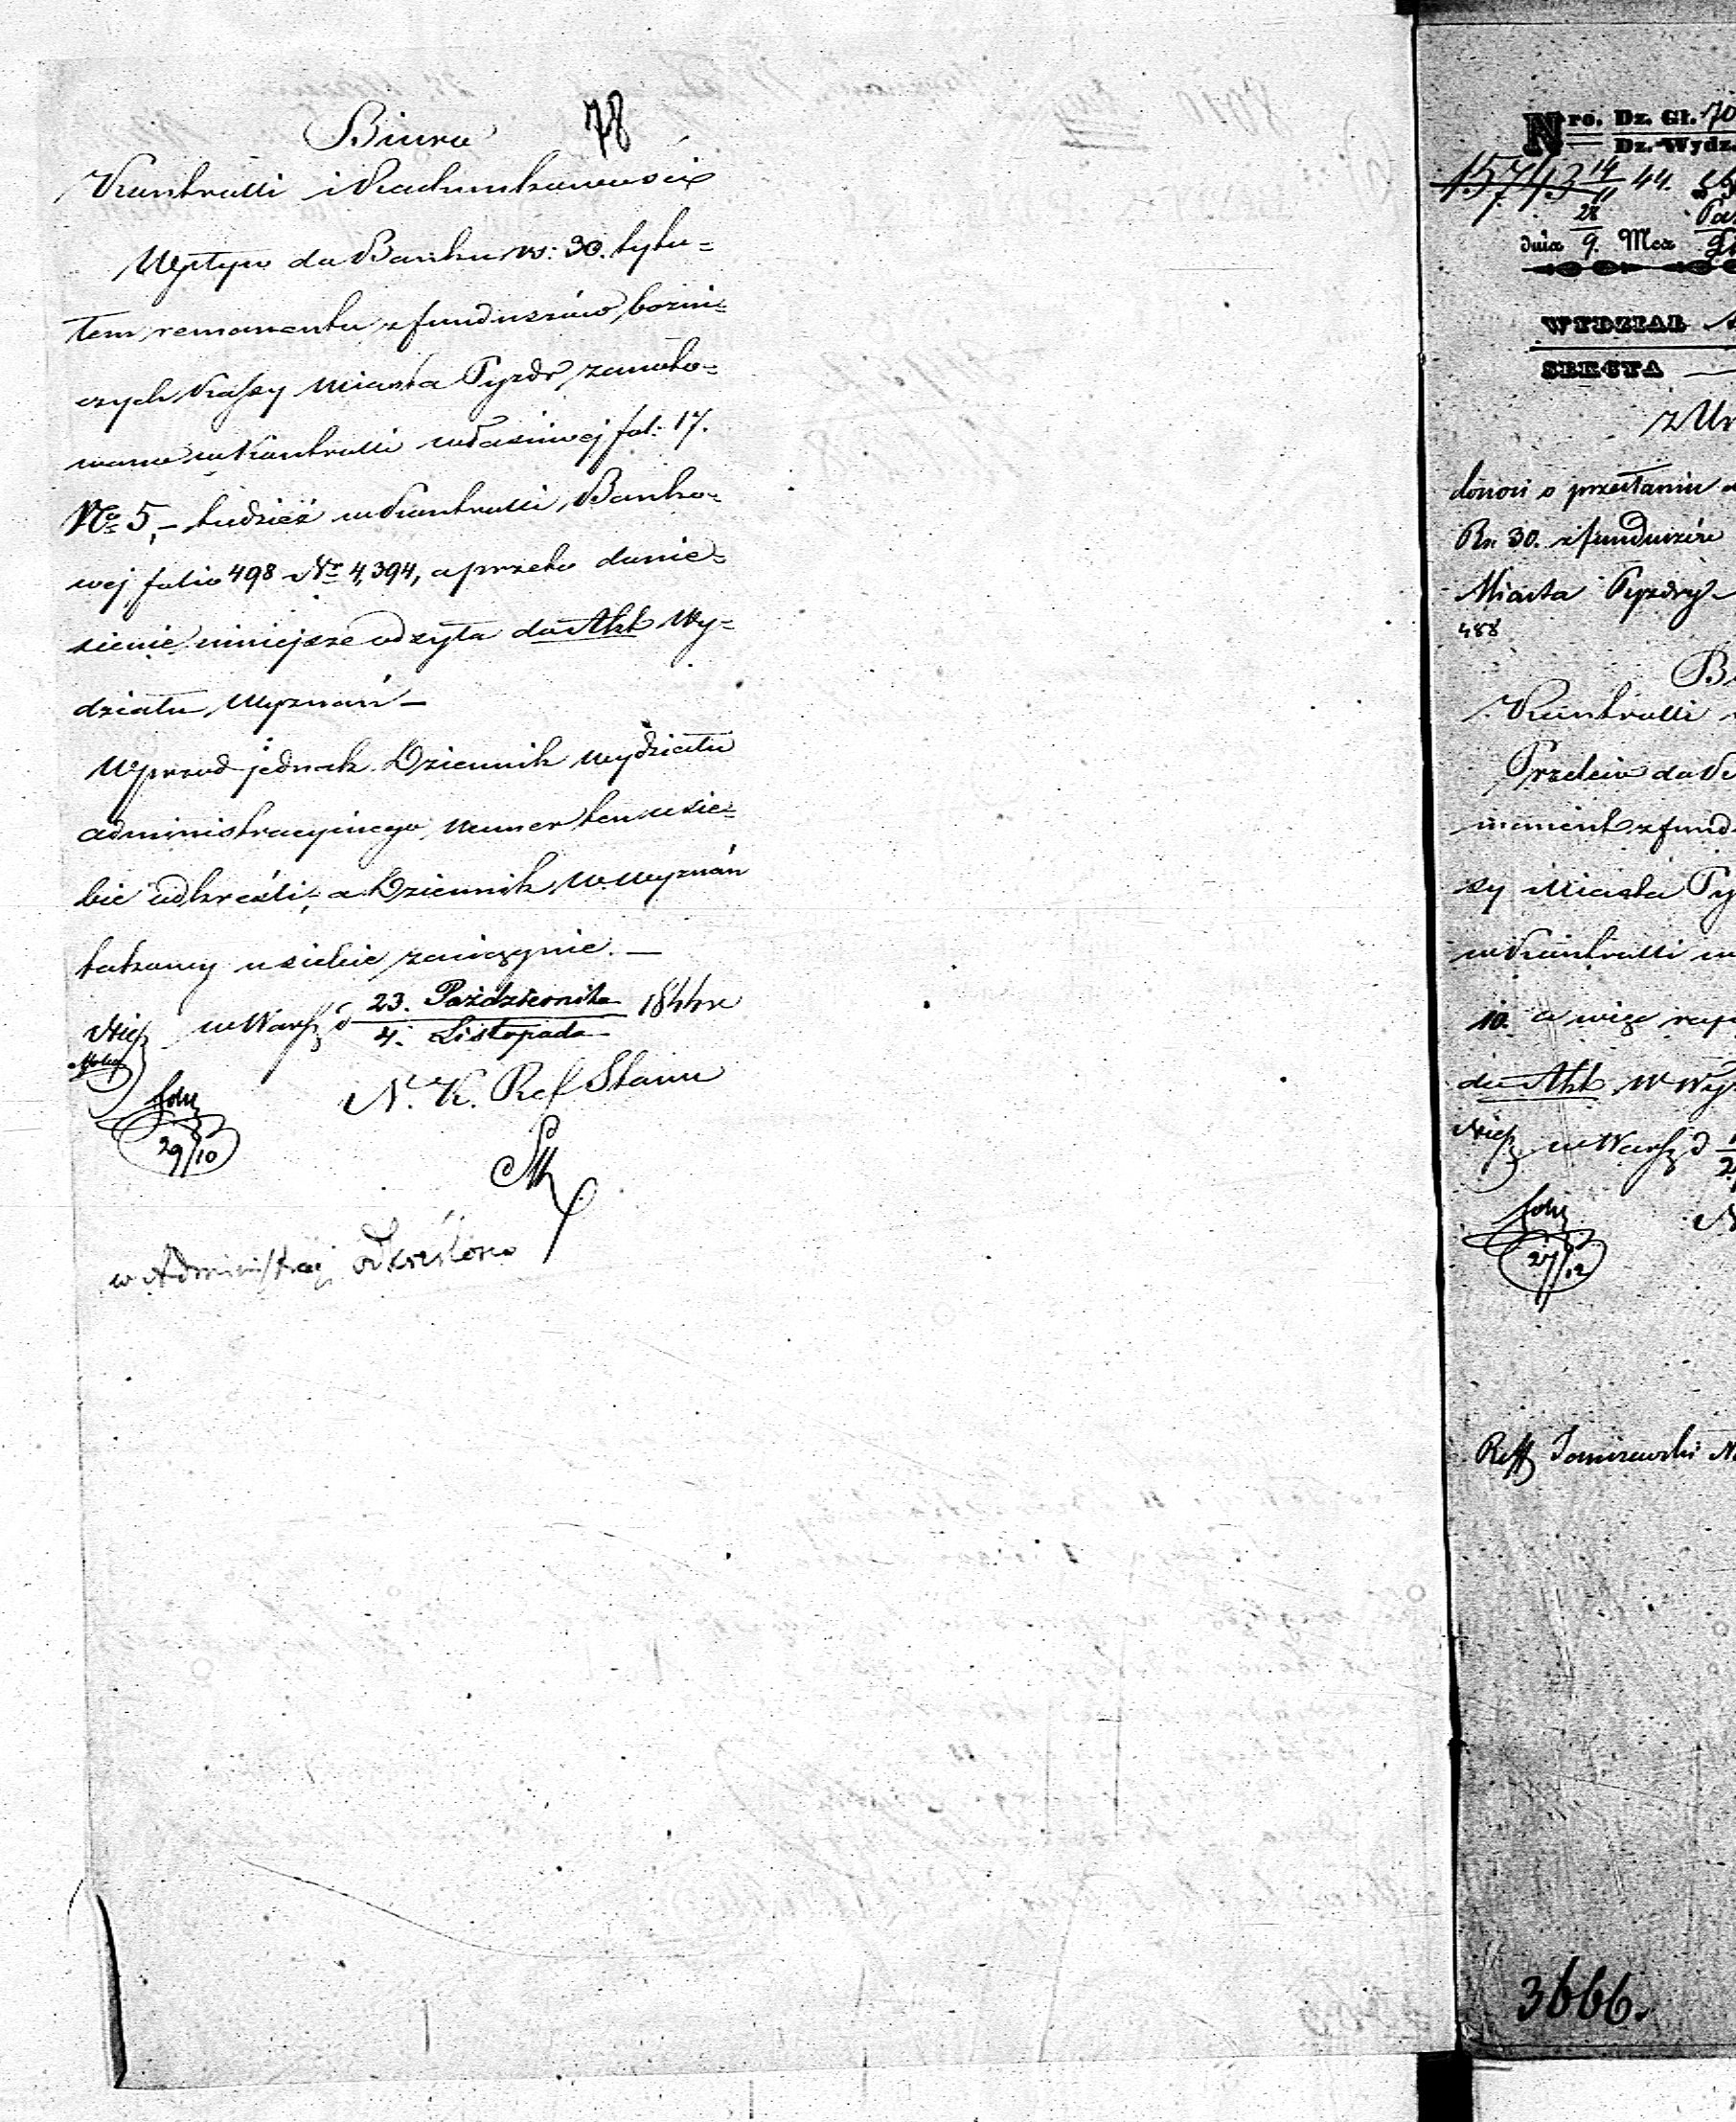 78
Biuro
Kontrolli i Rachunkowości
Wpływ do Banku rs: 30. tytu=
łem remanentu z funduszów bożni=
czych Kassy Miasta Pyzdr, zanoto=
wano w Kontrolli właściwej fol: 17.
No 5, – tudzież w Kontrolli Banko=
wej folio 498 Nr 4,394, a przeto donie=
sienie niniejsze odsyła do Akt Wy=
działu Wyznań –
Wprzod jednak Dziennik wydziału
administracyjnego numer ten u sie=
bie odkréśli, a Dziennik W. Wyznán
takowy u siebie zaciągnie. –
w Warsz d 23. Października 1844 r
4. Listopada
29/10
N. K. Ref Stanu
w Administracij odkreślono
Nro. Dz. Gł. 70
Dz. Wydz.
15743 14/11 44.
28
dnia 9. Mca
WYDZIAŁ
SEKCYA
z Ur
donosi o przesłaniu
Rs. 30. z funduszów
Miasta Pyzdry
488
B
Kontrolli
Przelew do
manent z fund
sy Miasta Py
w Kontrolli
10. a więc rap
do Akt W Wy
w Warsz d
27/12
N
Reff Tomszewski
3666.